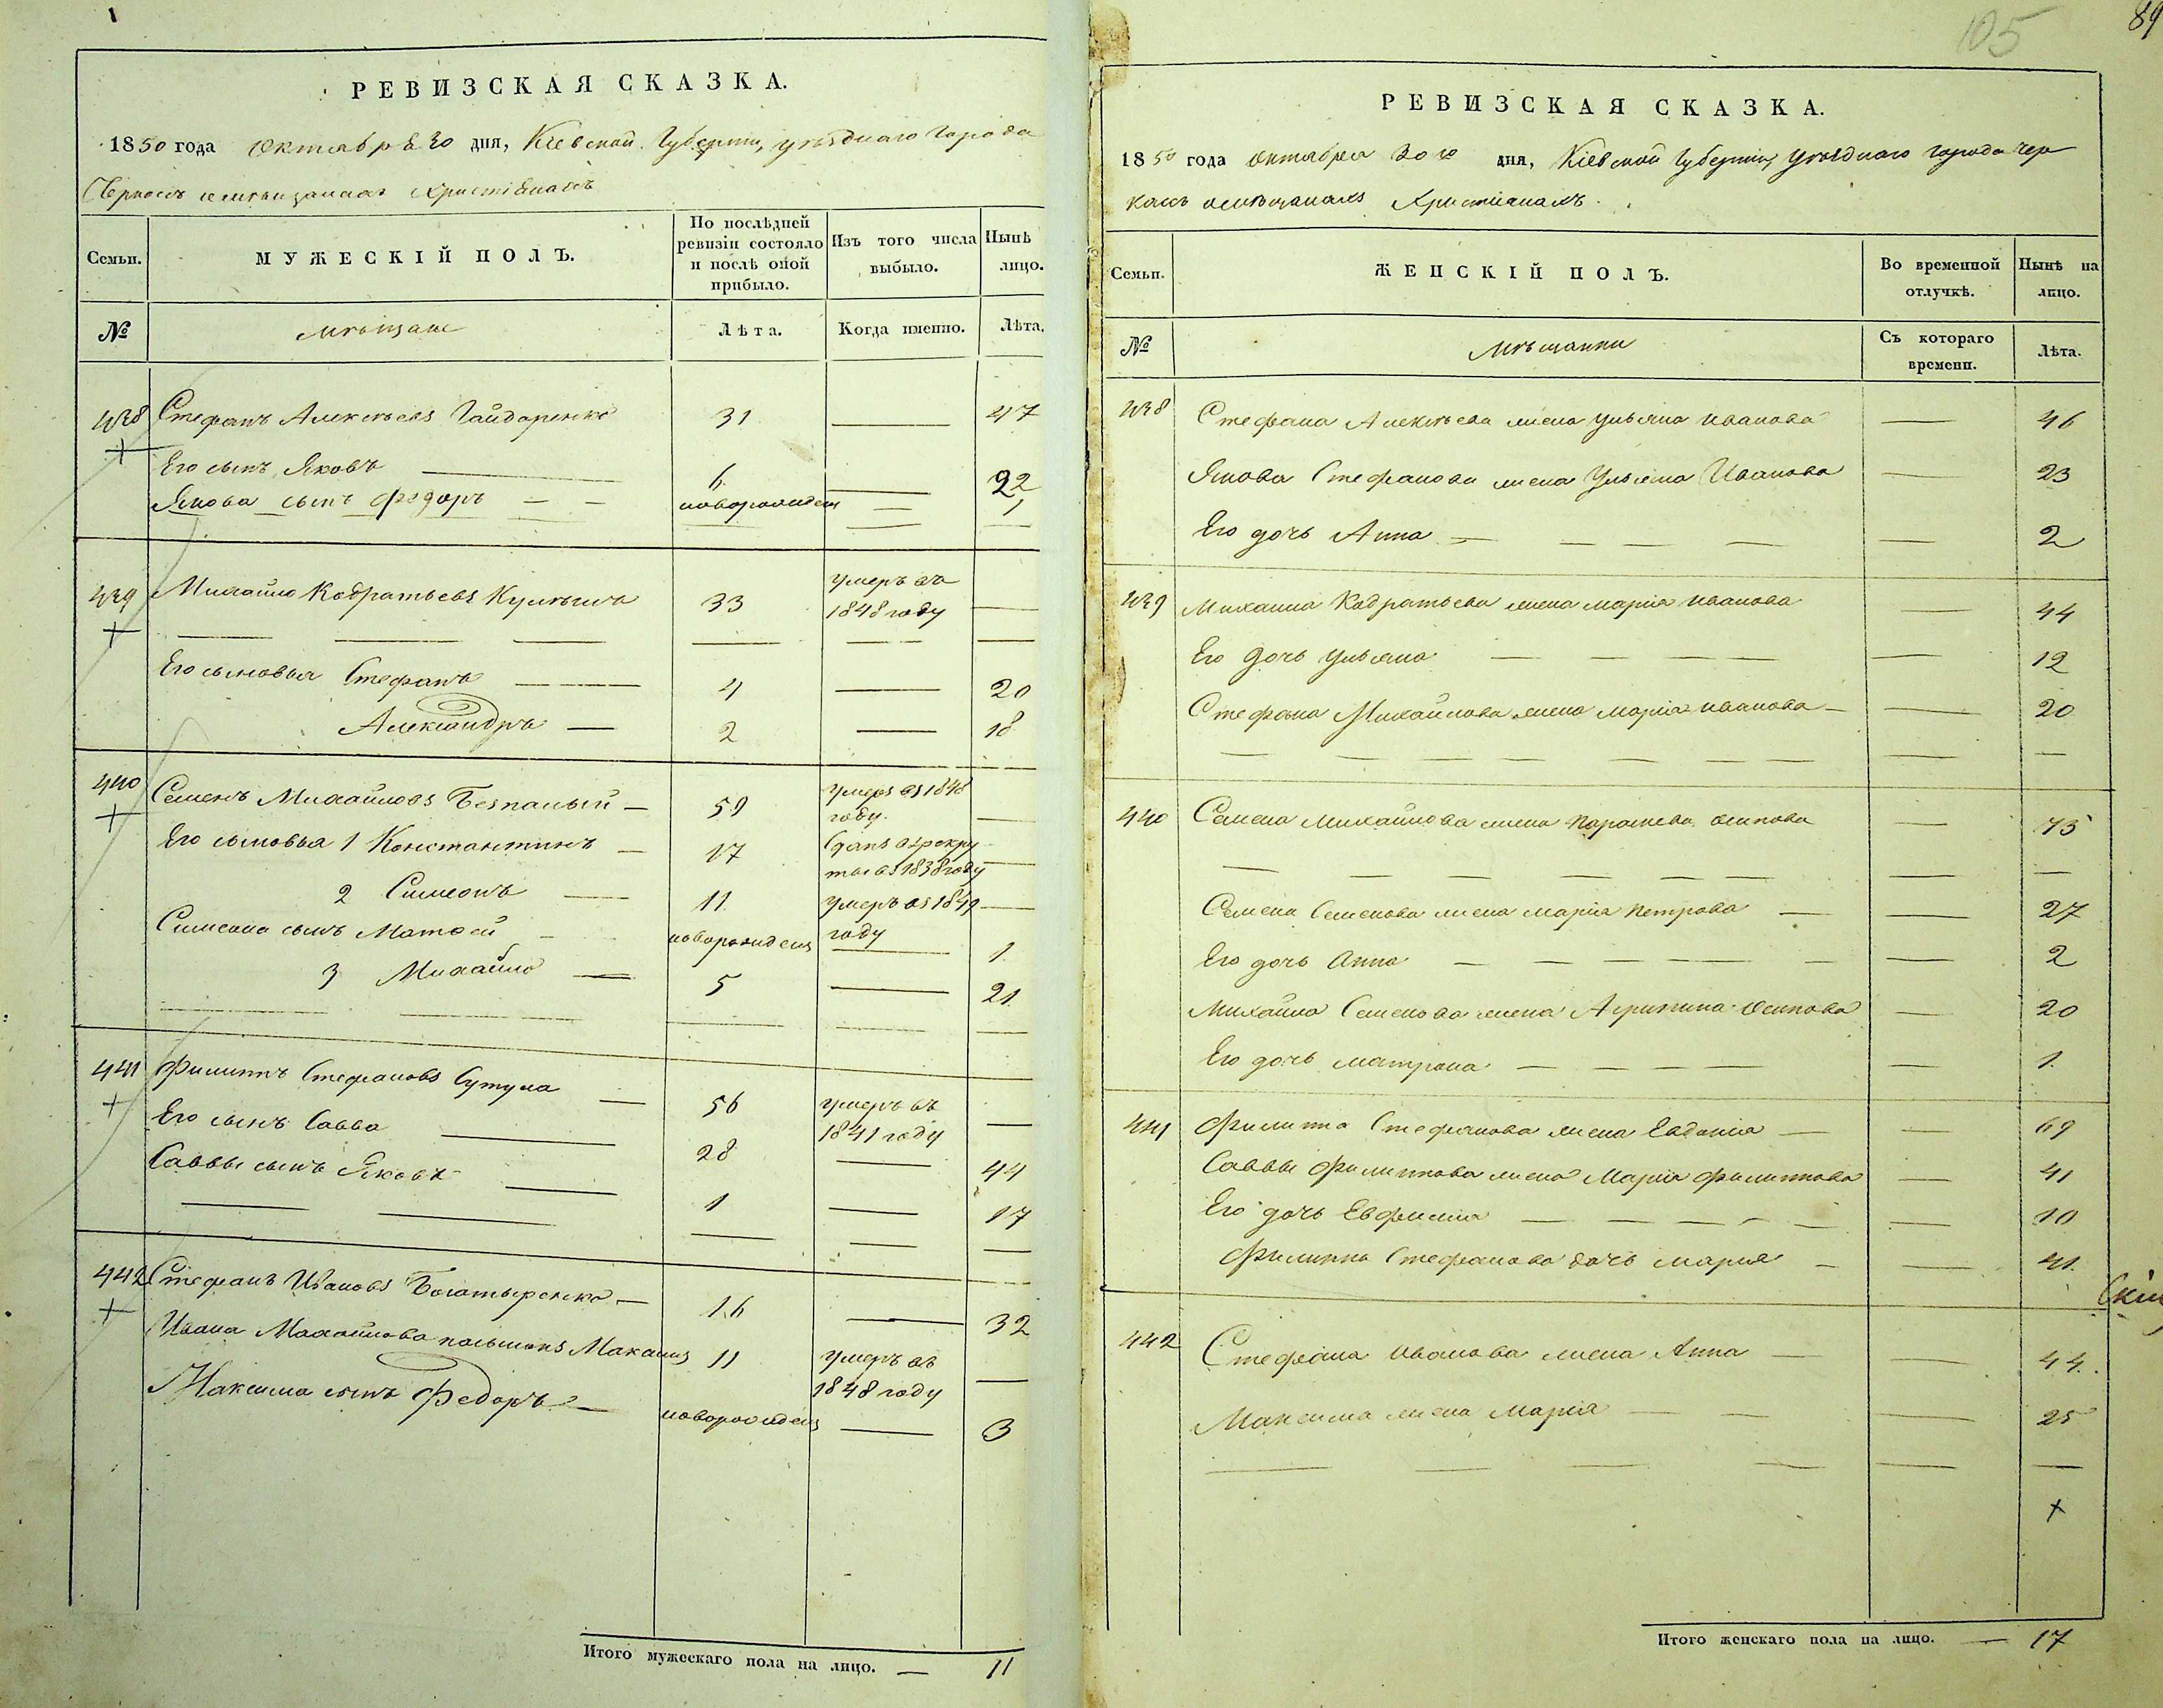 РЕВИЗСКАЯ СКАЗКА.
1850 года октября 30 дня, Кіевской Губерніи, уѣзднаго города
Черкасъ о мѣщанахъ Христіанахъ
Семьи.
МУЖЕСКІЙ ПОЛЪ.
По послѣдней
ревизіи состояло
и послѣ оной
прибыло.
Изъ того числа
выбыло.
Нынѣ
лицо.
№
мѣщане
Лѣта.
Когда именно.
Лѣта.
438 Стефанъ Алексѣевъ Гайдаренко 31 — 47
Его сынъ Яковъ — 6 — 22
Якова сынъ Федоръ — — новорожденъ — 1
439 Михайло Кодратьевъ 33 умеръ въ
1848 году —
Его сыновья Стефанъ — 4 — 20
Александръ — 2 — 18
440 Семенъ Михайловъ Безпалый — 59 умеръ въ 1848
году. —
Его сыновья 1 Константинъ — 17 Сданъ въ рекру
ты въ 1838 году —
2 Симеонъ — 11 умеръ въ 1849
году —
Симеона сынъ Матвей — новорожденъ — 1
3 Михайло — 5 — 21
441 Филиппъ Стефановъ Сутула — 56 умеръ въ
1841 году —
Его сынъ Савва — 28 — 44
Саввы сынъ Яковъ — 1 — 17
442 Стефанъ Ивановъ Богатыренко — 16 — 32
Ивана Михайлова Максимъ 11 умеръ въ
1848 году —
Максима сынъ Федоръ — новорожденъ — 3
Итого мужескаго пола на лицо. — 11
105
89
РЕВИЗСКАЯ СКАЗКА.
1850 года октября 30 го дня, Кіевской Губерніи, уѣзднаго города Чер
касъ о мѣщанахъ Христіанахъ.
Семьи.
ЖЕНСКІЙ ПОЛЪ.
Во временной
отлучкѣ.
Нынѣ на
лицо.
№
Мѣщанки
Съ котораго
времени.
Лѣта.
438 Стефана Алексѣева жена Ульяна Иванова — 46
Якова Стефанова жена Ульяна Иванова — 23
Его дочь Анна — — — — — 2
439 Михаила Кодратьева жена Марія Иванова — 44
Его дочь Ульяна — — — — — 12
Стефана Михайлова жена Марія Иванова — — 20
440 Семена Михайлова жена Параскева Осипова — 75
Семена Семенова жена Марія Петрова — — 27
Его дочь Анна — — — — — — 2
Михайла Семенова жена Агрипина Осипова — 20
Его дочь Матрона — — — — — 1.
441 Филиппа Стефанова жена Евдокія — — 69
Саввы Филиппова жена Марія Филиппова — 41
Его дочь Евфимия — — — — — — 10
Филиппа Стефанова дочь Мария — — 41.
442 Стефана Иванова жена Анна — — 44.
Максима жена Марія — — — 25
Итого женскаго пола на лицо. — 17